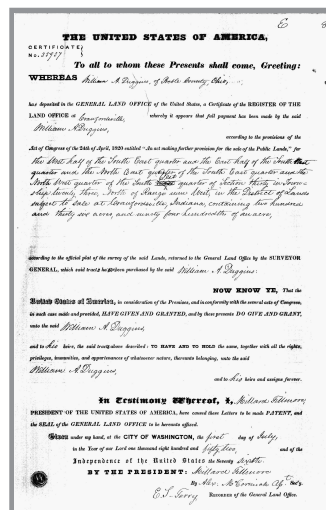 E 8
THE UNITED STATES OF AMERICA,
CERTIFICATE
No. 25927
To all to whom these Presents shall come, Greeting:
WHEREAS William A. Duggins, of County, Ohio,
has deposited in the GENERAL LAND OFFICE of the United States, a Certificate of the REGISTER OF THE
LAND OFFICE at Crawfordsville whereby it appears that full payment has been made by the said
William A. Duggins,
according to the provisions of the
Act of Congress of the 24th of April, 1820 entitled "An act making further provision for the sale of the Public Lands," for
the West half of the South East quarter and the East half of the South
quarter and the North East quarter of the South East quarter and the
North West quarter of the South quarter of Section thirty in Town-
ship twenty three, North of Range nine West, in the District of Lands
subject to Sale at Crawfordsville, Indiana, containing two hundred
and thirty six acres, and ninety four hundredths of an acre,
according to the official plat of the survey of the said Lands, returned to the General Land Office by the SURVEYOR
GENERAL, which said tract has been purchased by the said William A. Duggins:
NOW KNOW YE, That the
United States of America, in consideration of the Premises, and in conformity with the several acts of Congress,
in such case made and provided, HAVE GIVEN AND GRANTED, and by these presents DO GIVE AND GRANT,
unto the said William A. Duggins,
and to his heirs, the said tract above described: TO HAVE AND TO HOLD the same, together with all the rights,
privileges, immunities, and appurtenances of whatsoever nature, thereunto belonging, unto the said
William A. Duggins,
and to his heirs and assigns forever.
In Testimony Whereof, I, Millard Fillmore,
PRESIDENT OF THE UNITED STATES OF AMERICA, have caused these Letters to be made PATENT, and
the SEAL of the GENERAL LAND OFFICE to be hereunto affixed.
Given under my hand, at the CITY OF WASHINGTON, the first day of July,
in the Year of our Lord one thousand eight hundred and fifty two, and of the
Independence of the United States the Seventy Sixth
BY THE PRESIDENT: Millard Fillmore
By Alex. McCormick
E. S. Terry RECORDER of the General Land Office.